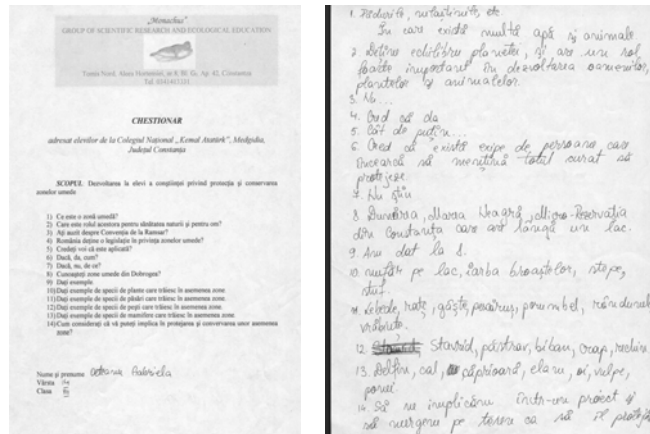 „Monachus"
GROUP OF SCIENTIFIC RESEARCH AND ECOLOGICAL EDUCATION
Tomis Nord, Aleea Hortensiei, nr 8, Bl. Ap. 42, Constanța
Tel. 0341411331
CHESTIONAR
adresat elevilor de la Colegiul Național „Kemal Atatürk", Medgidia,
Județul Constanța
SCOPUL Dezvoltarea la elevi a conștiinței privind protecția și conservarea
zonelor umede
1) Ce este o zonă umedă?
2) Care este rolul acestora pentru sănătatea naturii și pentru om?
3) Ați auzit despre Convenția de la Ramsar?
4) România deține o legislație în privința zonelor umede?
5) Credeți voi că este aplicată?
6) Dacă, da, cum?
7) Dacă, nu, de ce?
8) Cunoașteți zone umede din Dobrogea?
9) Dați exemple.
10) Dați exemple de specii de plante care trăiesc în asemenea zone.
11) Dați exemple de specii de păsări care trăiesc în asemenea zone.
12) Dați exemple de specii de pești care trăiesc în asemenea zone.
13) Dați exemple de specii de mamifere care trăiesc în asemenea zone.
14) Cum considerați că vă puteți implica în protejarea și conservarea unor asemenea
zone?
Nume și prenume Gabriela
Vârsta
Clasa
1. Pădurile, mlaștinile, etc
În care există multă apă și animale.
2. Dețin echilibru planetei, și are un rol
foarte important în dezvoltarea oamenilor,
plantelor și animalelor.
3. Nu...
4. Cred că da
5. Cât de puțin...
6. Cred că există exipe de persoane, care
încearcă să mențină totul curat să
protejeze.
7. Nu știu
8. Dunărea, Marea Neagră, Micro-Rezervația
din Constanța care are lângă un lac.
9. Am dat la 8.
10. nufăr pe lac, iarba broaștelor, stepe,
stuf.
11. Lebede, rațe, gâște, pescăruș, porumbel, rândunele
vrăbiuțe.
12. Stavrid, păstrav, biban, crap, rechin.
13. Delfin, cal, căprioară, elan, oi, vulpe,
ponei.
14. Să ne implicăm într-un proiect și
să mergem pe teren ca să îl protejăm